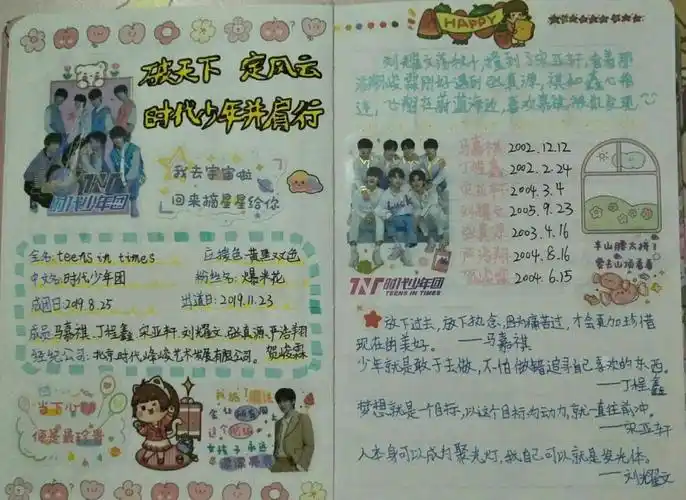 破天下 定风云
时代少年并肩行
我去宇宙啦
回来摘星星给你
TNT
时代少年团
全名: teens in times 应援色: 黄黑双色
中文名: 时代少年团 粉丝名: 爆米花
成团日: 2019.8.25 出道日: 2019.11.23
成员: 马嘉祺.丁程鑫 宋亚轩.刘耀文.张真源.严浩翔
贺峻霖
经纪公司: 北京时代峰峻艺术发展有限公司。
当下
便是最珍贵
HAPPY
刘耀文落秋叶,撞到了宋亚轩,看着那
浩翔峻霖刚好遇到张真源,祺如鑫心相
马嘉祺 2002.12.12
丁程鑫 2002.2.24
宋亚轩 2004.3.4
刘耀文 2005.9.23
张真源 2003.4.16
严浩翔 2004.8.16
贺峻霖 2004.6.15
TNT时代少年团
TEENS IN TIMES
半山腰太挤
要去山顶看看
放下过去,放下执念,因为痛苦过,才会更加珍惜
现在的美好。 ——马嘉祺
少年就是敢于去做,不怕做错追寻自己喜欢的东西。
——丁程鑫
梦想就是一个目标,以这个目标为动力,就一直往前冲。
——宋亚轩
人本身可以成为聚光灯,我自己可以就是发光体。
——刘耀文